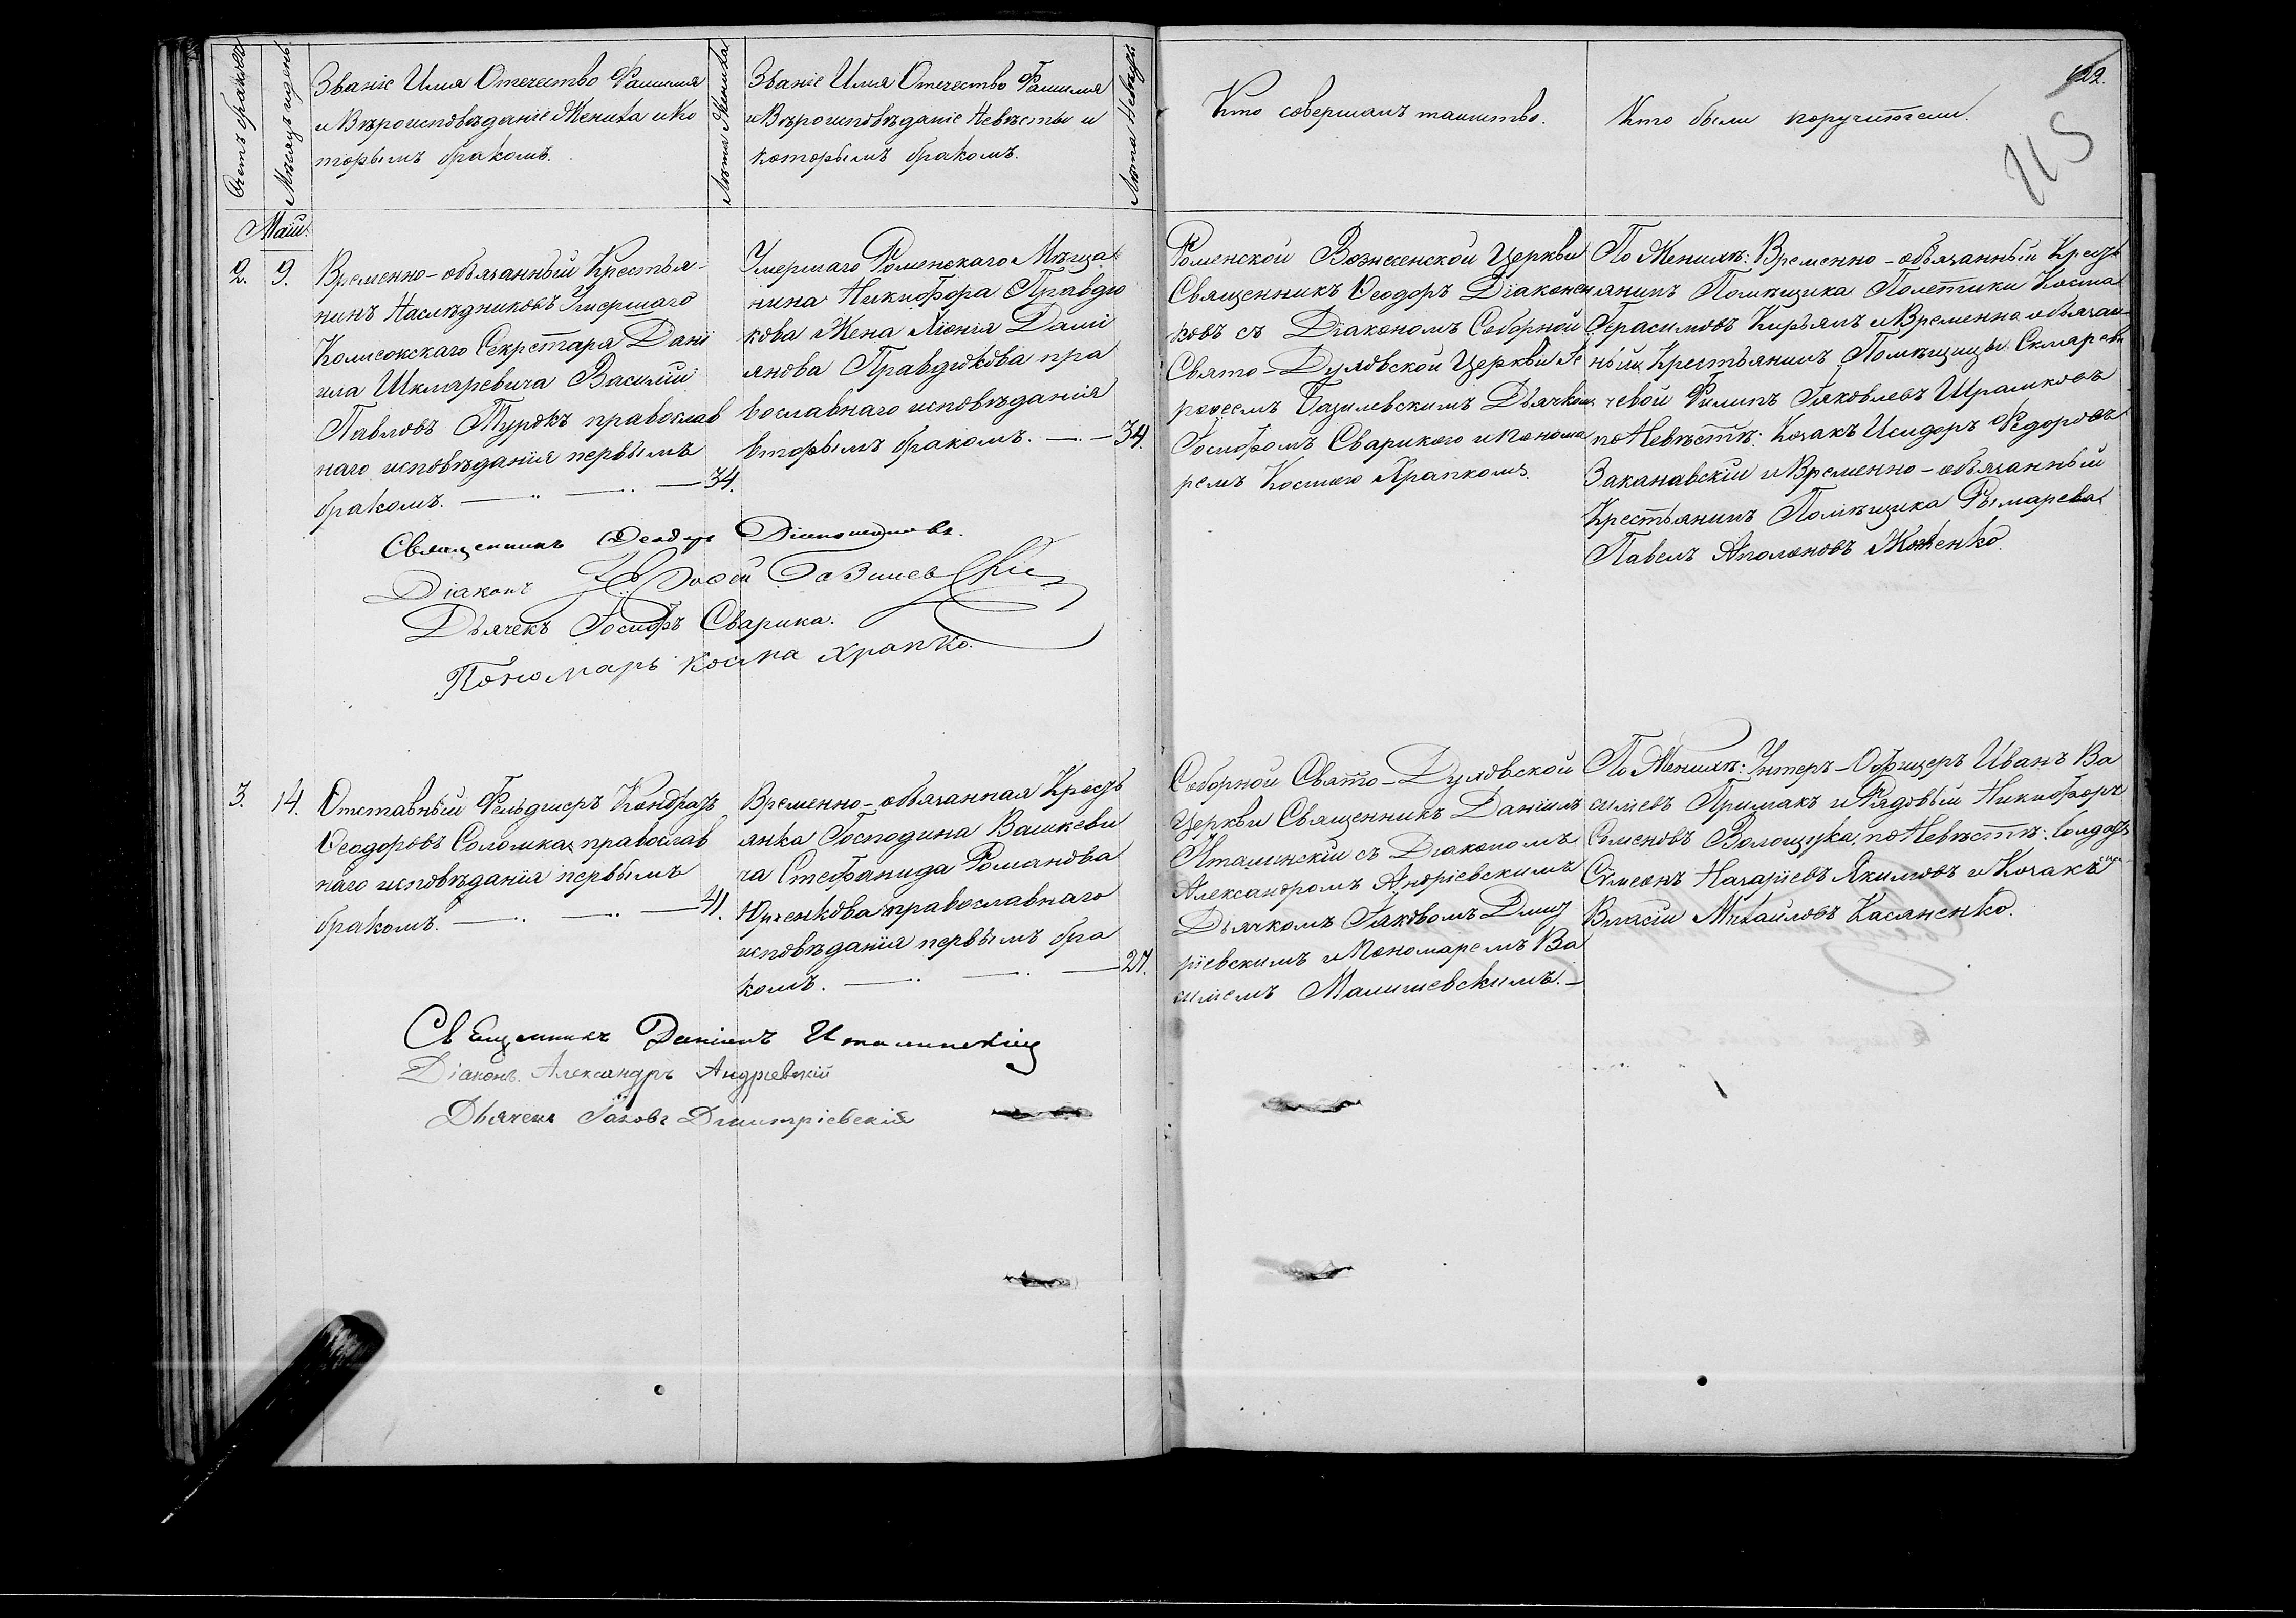 Счетъ браковъ
Мѣсяцъ и день
Званіе Имя Отечество Фамилия
и Вѣроисповѣданіе Жениха и Ко
торымъ бракомъ.
Лѣта Жениха
Званіе Имя Отечество Фамилия
и Вѣроисповѣданіе Невѣсты и
которымъ бракомъ.
Лѣта Невѣсты
Кто совершалъ таинство.
Кто были поручители.
122.
215
Маій
2. 9.
Временно-обязанный Крестья-
нинъ Наслѣдниковъ Умершаго
Колисокскаго Секретаря Дані
ила Шкляревича Василій
Павловъ Турокъ православ
наго исповѣданія первымъ
бракомъ. 34.
Умершаго Роменскаго Мѣща
нина Никифора Правдю
кова Жена Даміа
янова Правдюкова пра
вославнаго исповѣданія
вторымъ бракомъ. 34.
Роменской Вознесенской Церкви
Священникъ Ѳеодоръ Діаконен
ковъ съ Діакономъ Соборной
Свято-Духовской Церкви Іе
роѳеемъ Базилевскимъ Дьячкомъ
Іосифомъ Сварикою и Понома
ремъ Космою Храпкомъ.
По Женихѣ: Временно-обязанный Кресть
янинъ Помѣщика Полетики Косма
Герасимовъ Кирьянъ и Временно обязан-
ный Крестьянинъ Помѣщицы Скляреви
чевой Филипъ Іяковлевъ Шрамковъ
по Невѣстѣ: Козакъ Исидоръ Федоровъ
Заканавскій и Временно-обязанный
Крестьянинъ Помѣщика Рымарева
Павелъ Аполоновъ Коженко.
Священникъ Ѳеодоръ Діаконенковъ.
Діаконъ Іероѳей Базилевскій
Дьячекъ Іосифъ Сварика.
Пономарь Косма Храпко.
3. 14.
Отставный Фельдшеръ Кондратъ
Ѳеодоровъ Соломка, православ
наго исповѣданія первымъ
бракомъ. 41.
Временно-обязанная Кресть
янка Господина Вашкеви
ча Стефанида Романова
Юрченкова православнаго
исповѣданія первымъ бра
комъ. 27.
Соборной Свято-Духовской
Церкви Священникъ Даніилъ
Италинскій съ Діакономъ
Александромъ Андріевскимъ
Дьячкомъ Іаковомъ Дмит
ріевскимъ и Пономаремъ Ва
силіемъ Малишевскимъ.
По Женихѣ: Унтеръ-Офицеръ Иванъ Ва
силіевъ Примакъ и Рядовый Никифоръ
Семеновъ Волощука, по Невѣстѣ: Солдатъ
Сѵмеонъ Назаріевъ Якимовъ и Козакъ
Власій Михайловъ Касяненко.
Священникъ Даніилъ Италинскій
Діаконъ Александръ Андріевскій
Дьячекъ Іаковъ Дмитріевскій